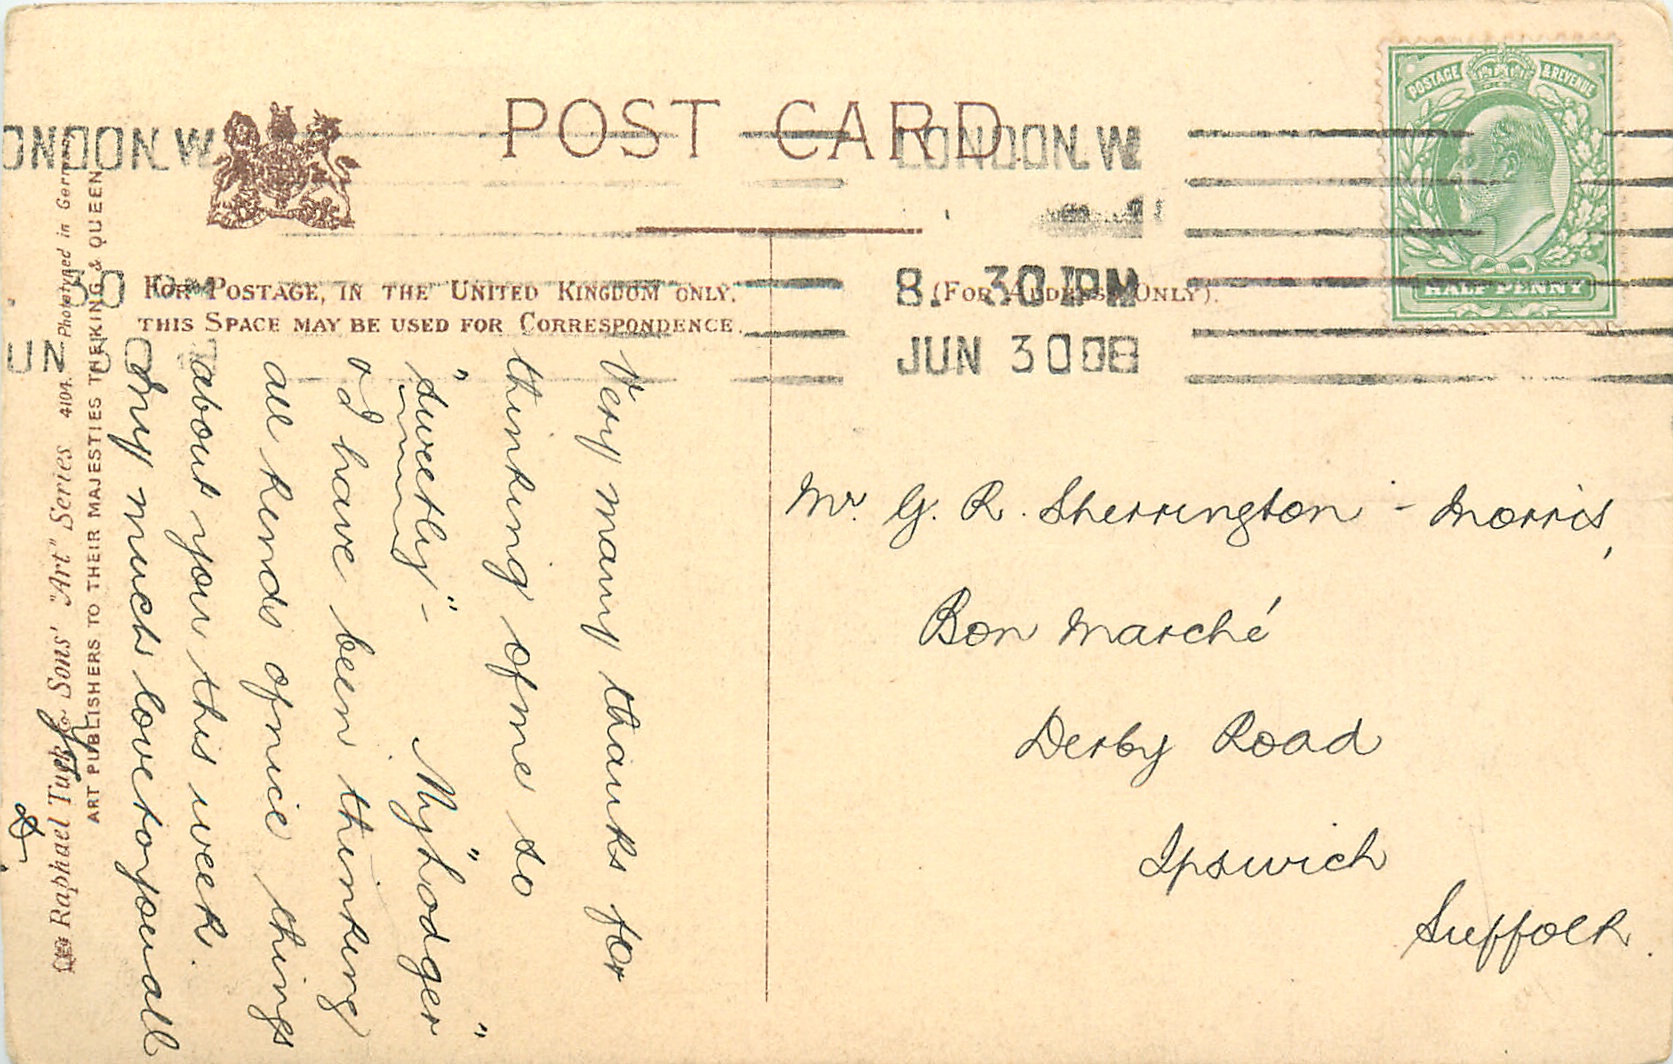 POST CARD
FOR POSTAGE, IN THE UNITED KINGDOM ONLY,
THIS SPACE MAY BE USED FOR CORRESPONDENCE.
(FOR ADDRESS ONLY).
POSTAGE & REVENUE
HALF PENNY
LONDON. W
8. 30 PM
JUN 30 08
ONDON. W
30 PM
UN 30
Very many thanks for
thinking of me so
"sweetly" - "My Lodger"
& I have been thinking
all kinds of nice things
about you this week.
My much love to you all
Mr. G. R. Sherrington - Morris,
Bon Marché
Derby Road
Ipswich
Suffolk.
Raphael Tuck & Sons' "Art" Series 4104. Phototyped in Germany
ART PUBLISHERS TO THEIR MAJESTIES THE KING & QUEEN